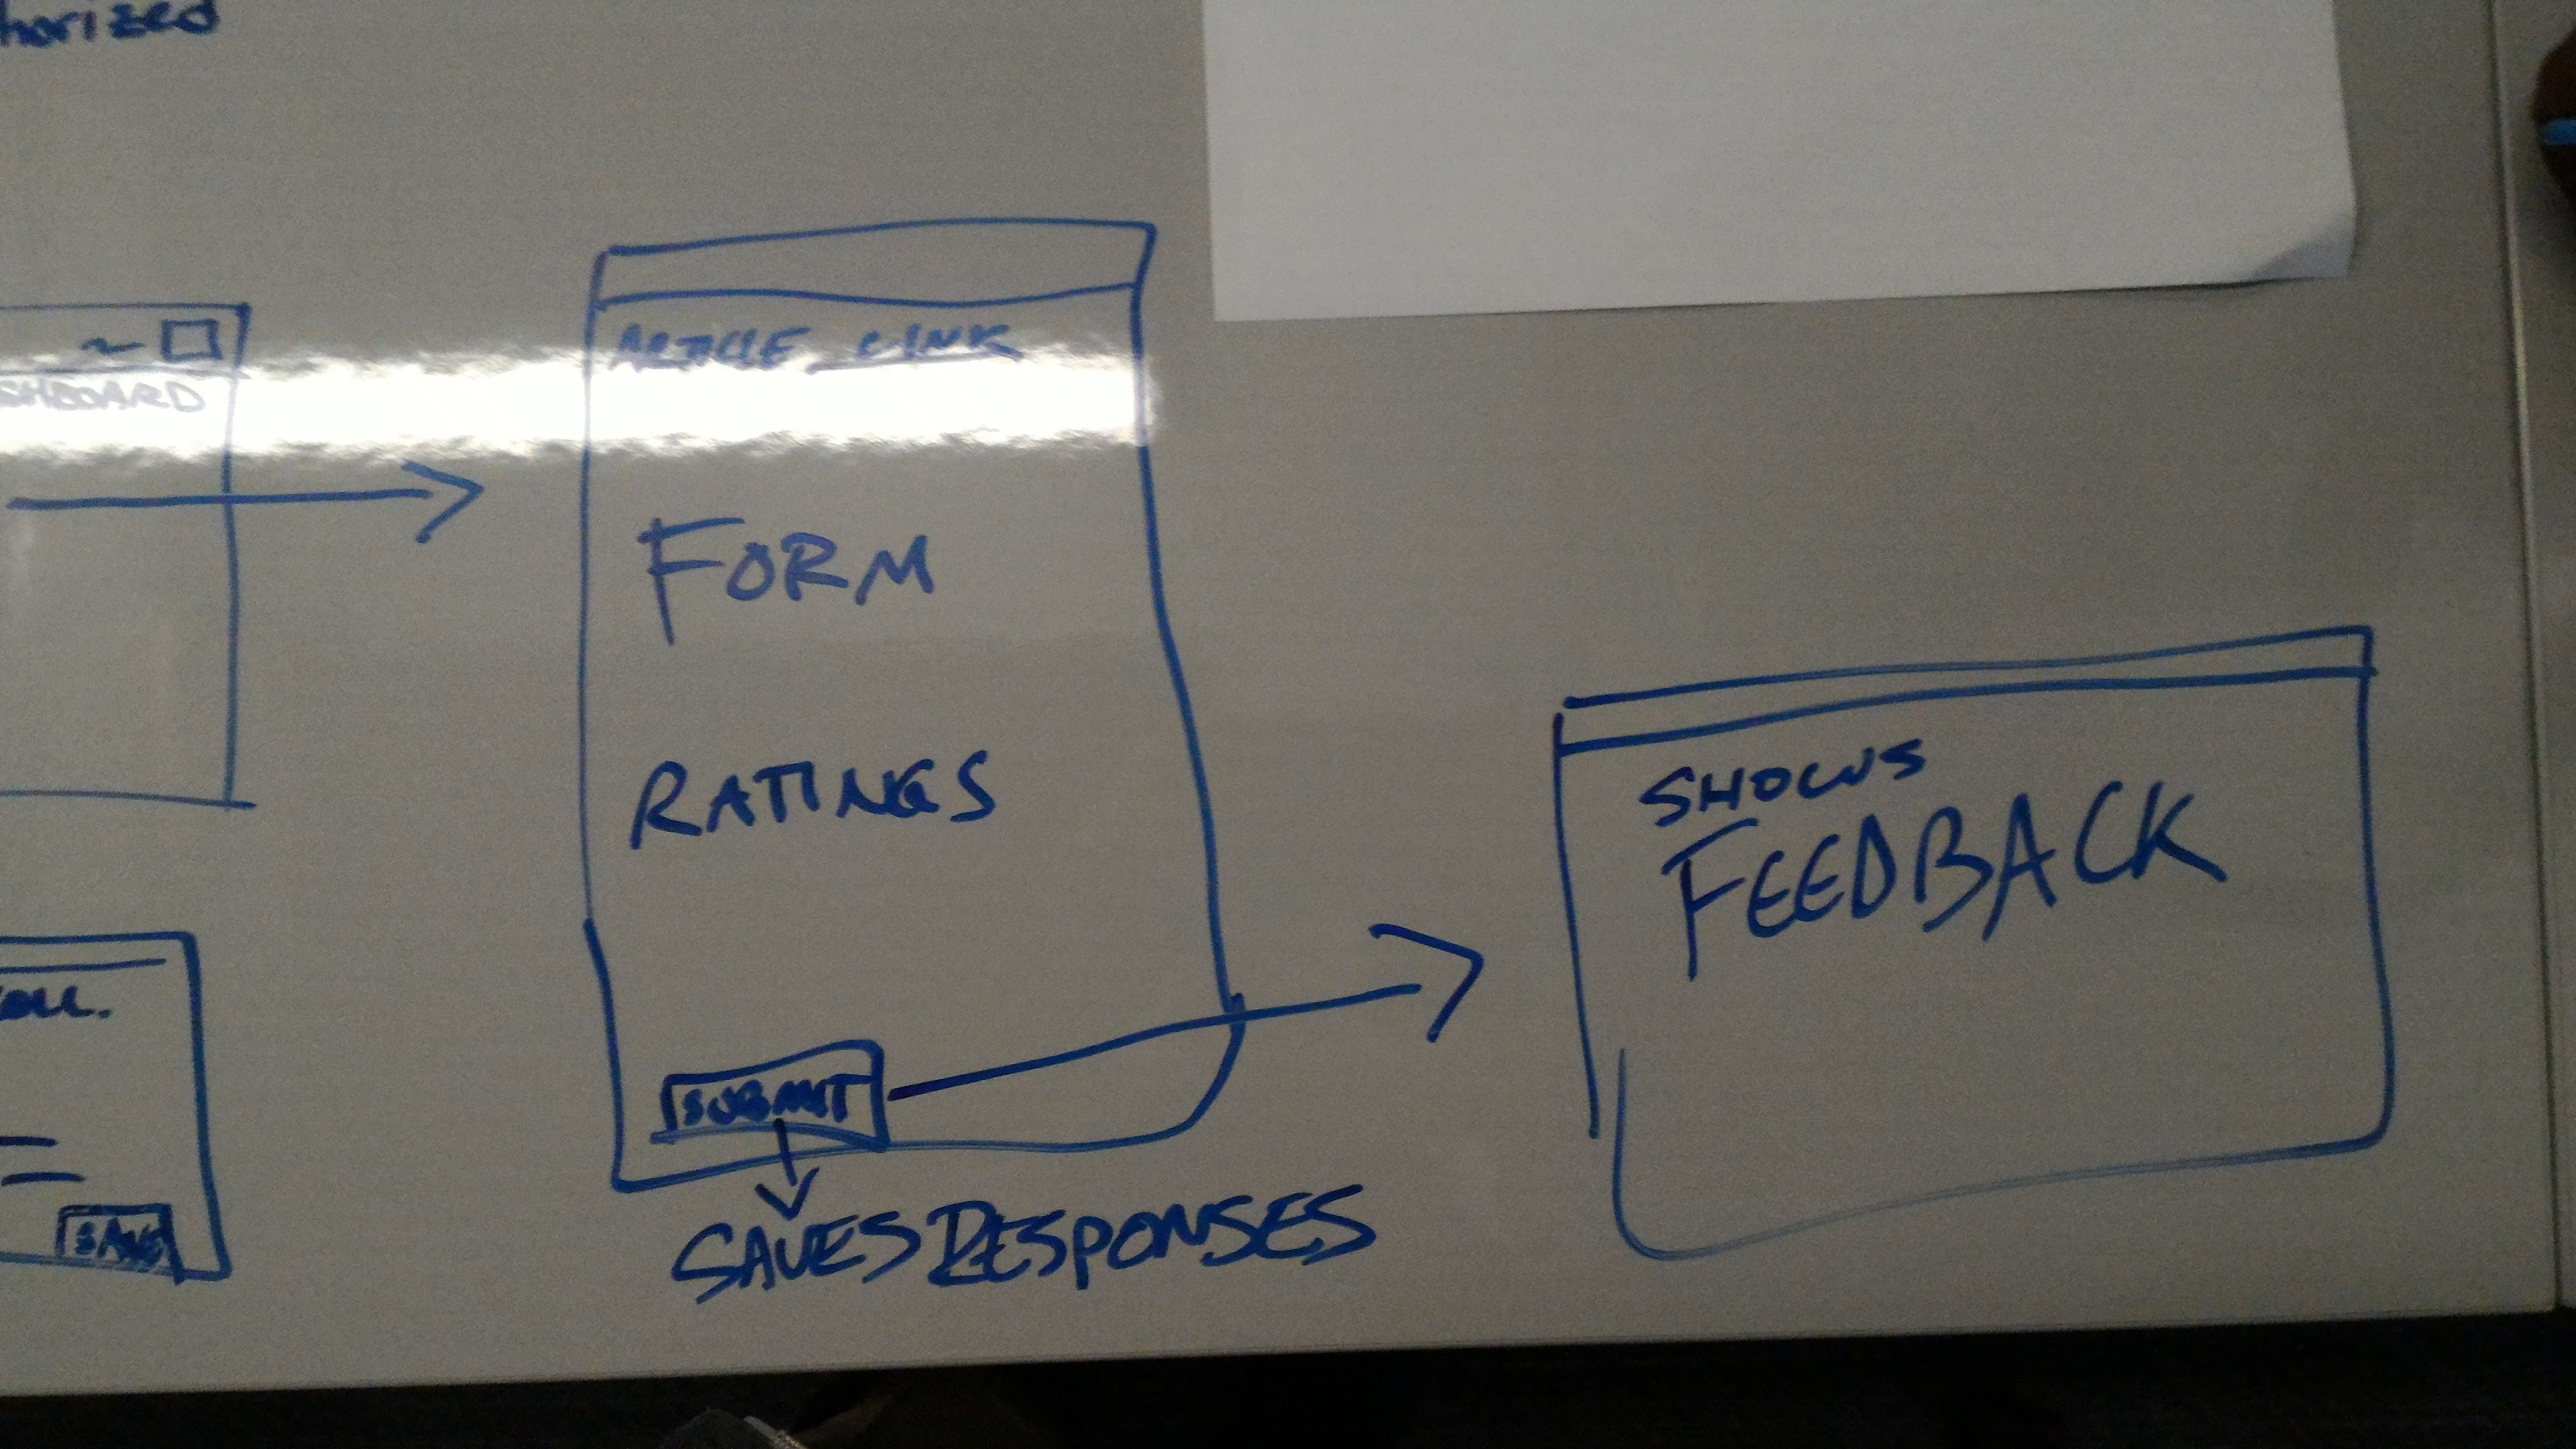 horized
SHBOARD
ARTICLE LINK
FORM
RATINGS
SUBMIT
SAVES RESPONSES
SHOWS
FEEDBACK
SAVE